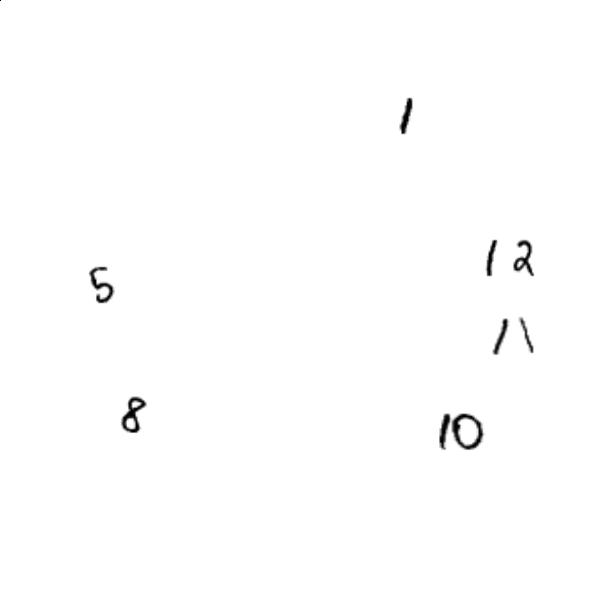 1
12
5
11
8
10